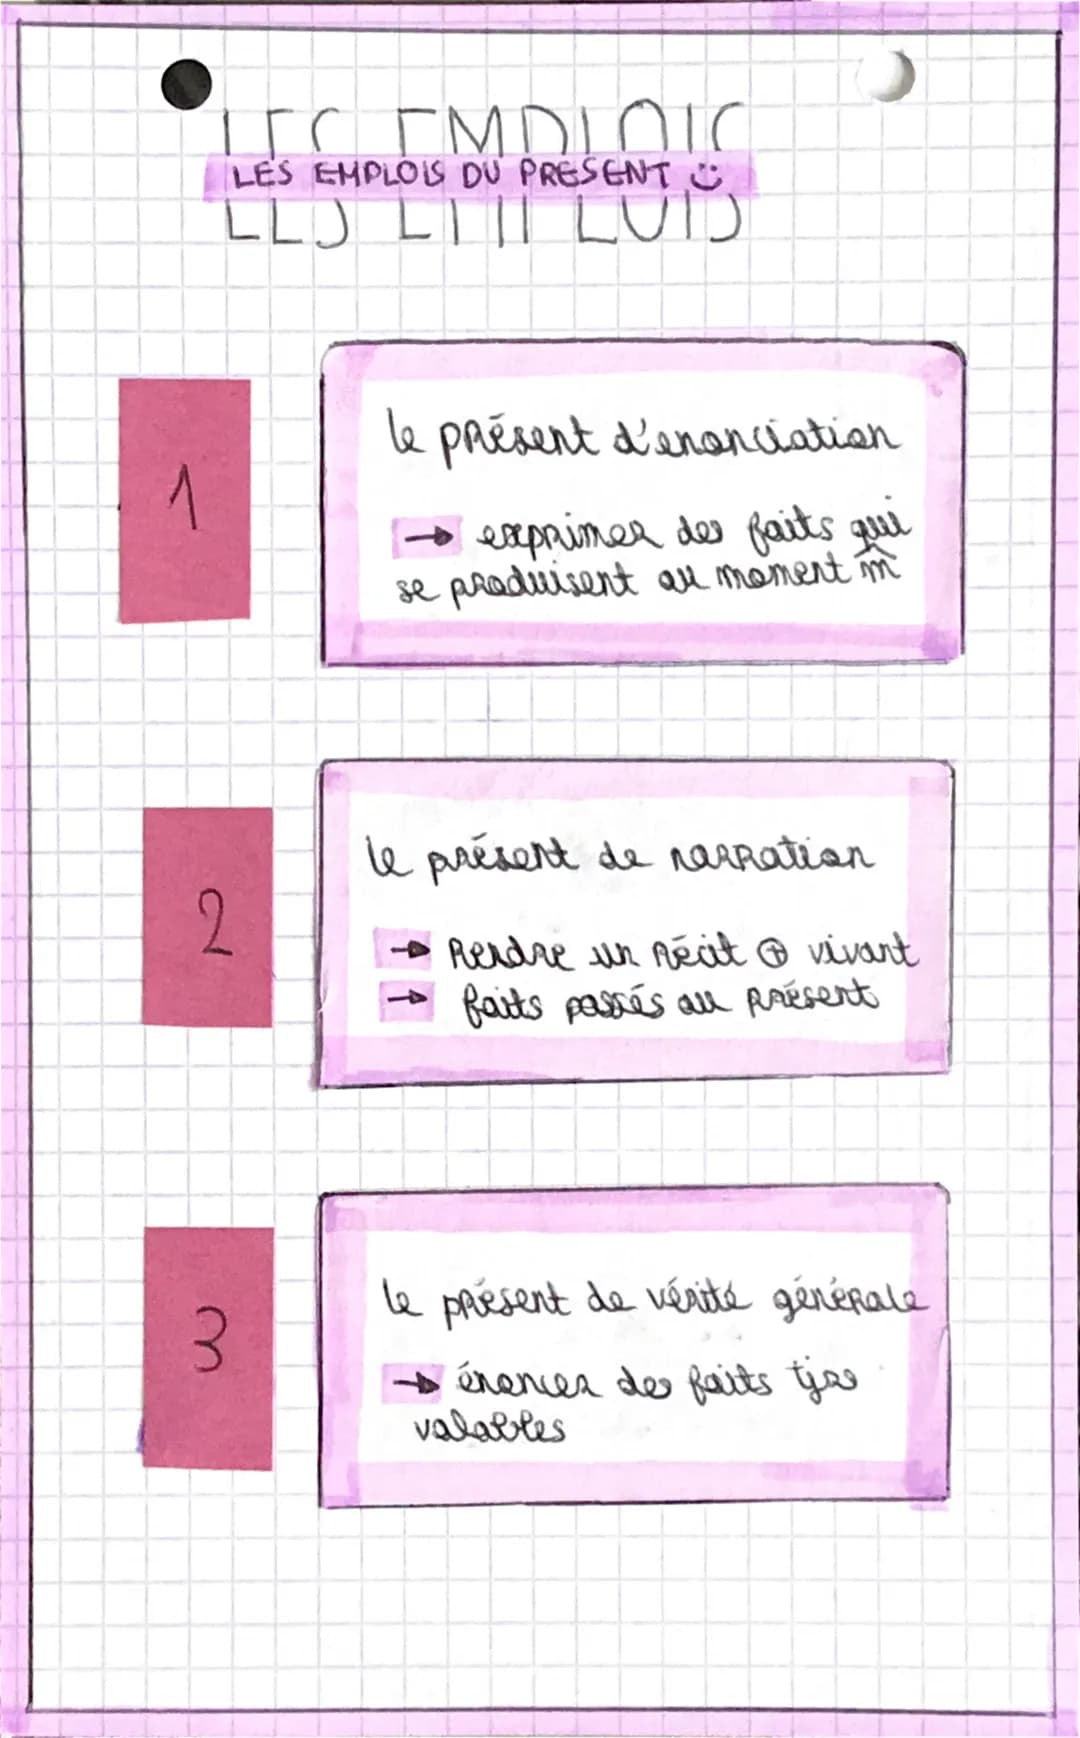 LES EMPLOIS
LES EMPLOIS DU PRESENT
1
le présent d'enonciation
→ exprimer des faits qui
se produisent au moment m̂
2
le présent de narration
→ Rendre un récit ⊕ vivant
→ faits passés au présent
3
le présent de vérité générale
→ énoncer des faits tjrs
valables